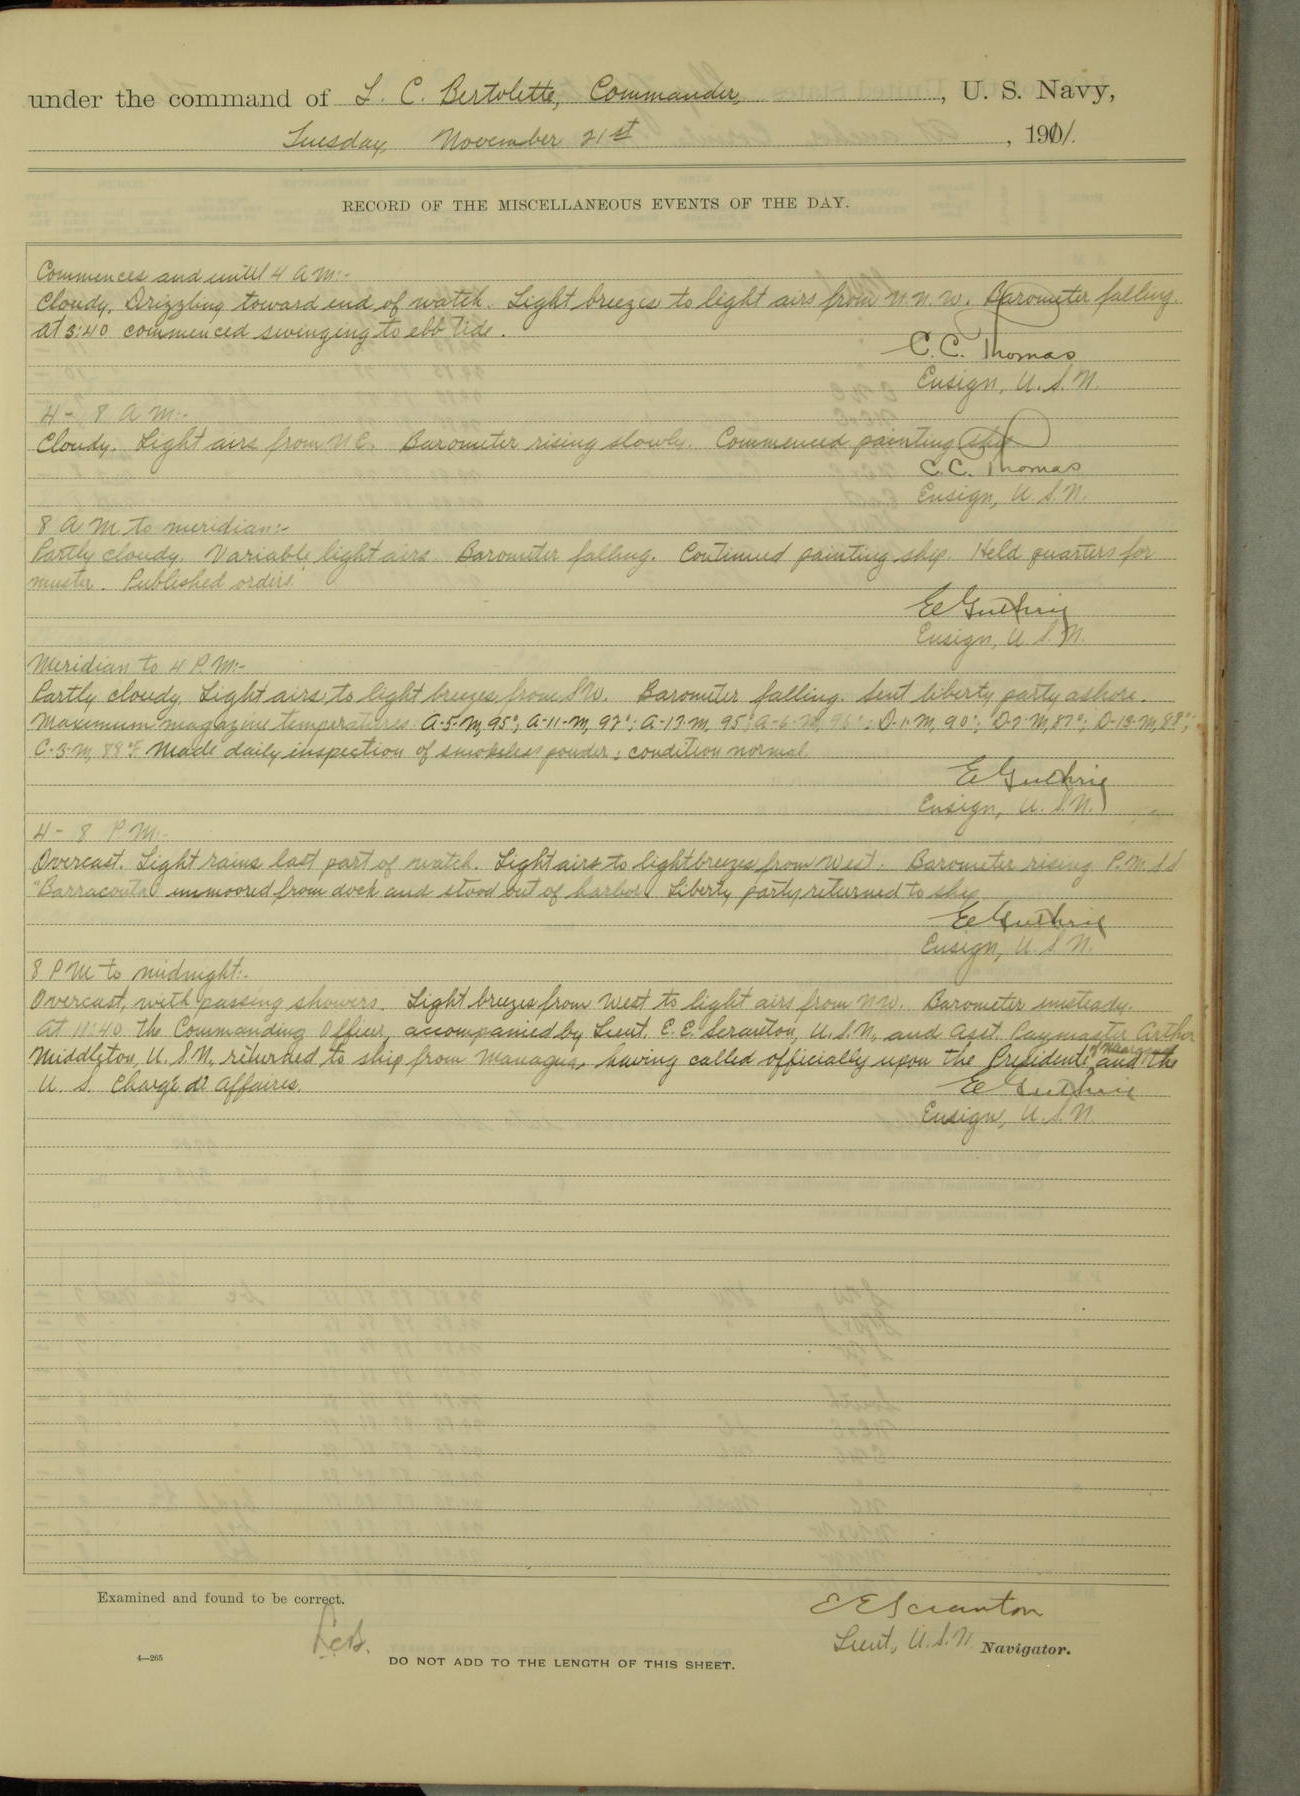 under the command of L. C. Bertolette, Commander, , U. S. Navy,
Tuesday, November 21st , 1911.
RECORD OF THE MISCELLANEOUS EVENTS OF THE DAY.
Commences and until 4 A M:-
Cloudy, Drizzling toward end of watch. Light breezes to light airs from N. N. W. Barometer falling.
At 3:40 commenced swinging to ebb Tide.
C. C. Thomas
Ensign, U. S. N.
4 - 8 A M:-
Cloudy. Light airs from N E. Barometer rising slowly. Commenced painting ship
C. C. Thomas
Ensign, U. S. N.
8 A M to meridian:-
Partly cloudy. Variable light airs. Barometer falling. Continued painting ship. Held quarters for
muster. Published orders.
E Guthrie
Ensign, U. S. N.
Meridian to 4 P. M:-
Partly cloudy. Light airs to light breezes from S W. Barometer falling. Sent liberty party ashore.
Maximum magazine temperatures: A-5-M, 95°; A-11-M, 97°; A-17-M, 95; A-6-M, 96°; D-1-M, 90°; D-2-M, 87°; D-13-M, 88°;
C-3-M, 88°F. Made daily inspection of smokeless powder; condition normal.
E Guthrie
Ensign, U. S. N.
4 - 8 P. M:-
Overcast. Light rains last part of watch. Light airs to light breezes from West. Barometer rising. P. M. S S
"Barracouta" unmoored from dock and stood out of harbor. Liberty party returned to ship.
E Guthrie
Ensign, U. S. N.
8 P M to midnight:-
Overcast, with passing showers. Light breezes from West to light airs from NW. Barometer unsteady.
At 11:40 the Commanding Officer, accompanied by Lieut. E. E. Scranton, U. S. N., and Asst. Paymaster Arthur
Middleton, U. S. N., returned to ship from Managua, having called officially upon the President of Nicaragua and the
U S. Chargé d' Affaires.
E Guthrie
Ensign, U. S. N.
Examined and found to be correct.
L.C.B.
E E Scranton
Lieut, U. S. N. Navigator.
4—265
DO NOT ADD TO THE LENGTH OF THIS SHEET.